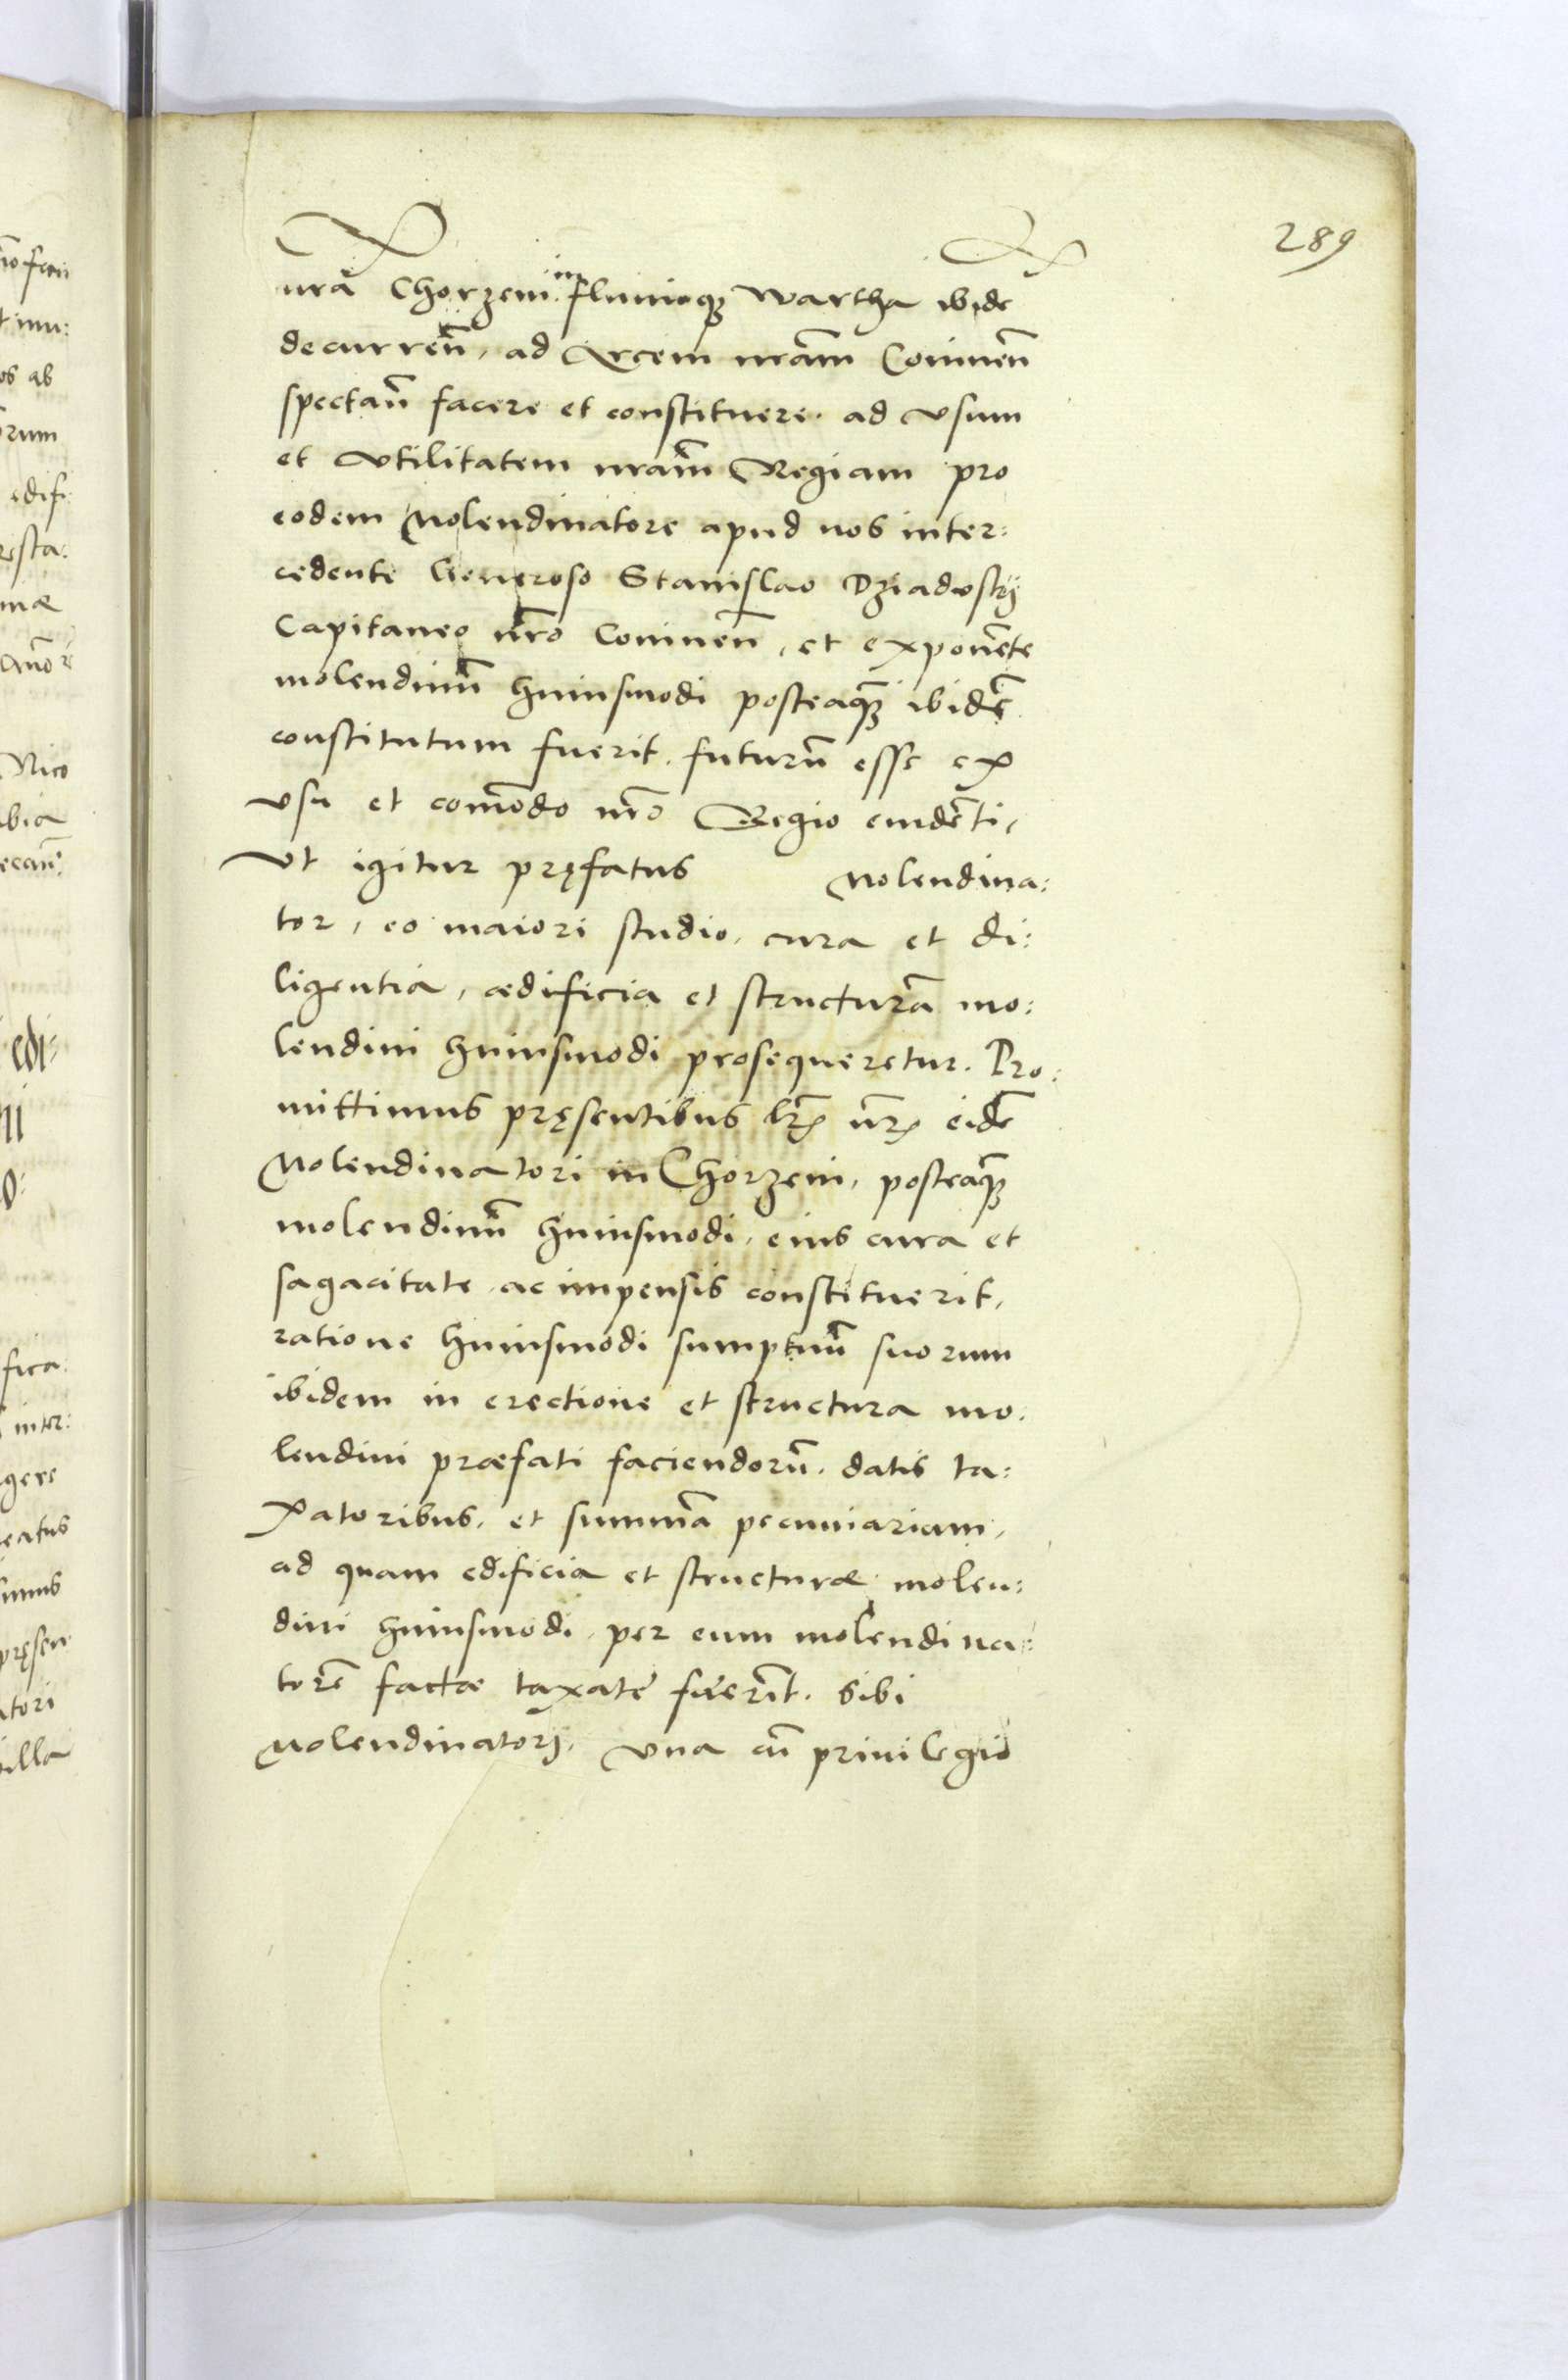 289
nrã Chorzenin in fluuioq3 Wartha ibidẽ
decurreñ, ad Arcem nram̃ Coninen̄
spectan̄ facere et constituere. ad vsum
et vtilitatem nram̃ Regiam pro
eodem Molendinatore apud nos inter:
cedente Generoso Stanislao Dziadoskj
Capitaneo nr̃o Coninen̄, et exponẽte
molendinũ huiusmodi posteaq̃3 ibidẽ
constitutum fuerit. futurũ esse ex
vsu et com̃odo nr̃o Regio euidẽti,
Vt igitur pręfatus Molendina:
tor, eo maiori studio, cura et di:
ligentia, ædificia et structurã mo:
lendini huiusmodi prosequeretur. Pro:
mittimus pręsentibus lr̃is nr̃is eidẽ
Molendinatori in Chorzenin, posteaq̃3
molendinũ huiusmodi, eius cura et
sagacitate ac impensis constituerit,
ratione huiusmodi sumptuũ suorum
ibidem in erectione et structura mo:
lendini præfati faciendorũ. datis ta:
xatoribus, et summã pecuniariam,
ad quam edificia et structuræ molen:
dini huiusmodi, per eum molendina:
torẽ factæ taxatę fuerĩt. sibi
Molendinatorj, vna cũ priuilegio